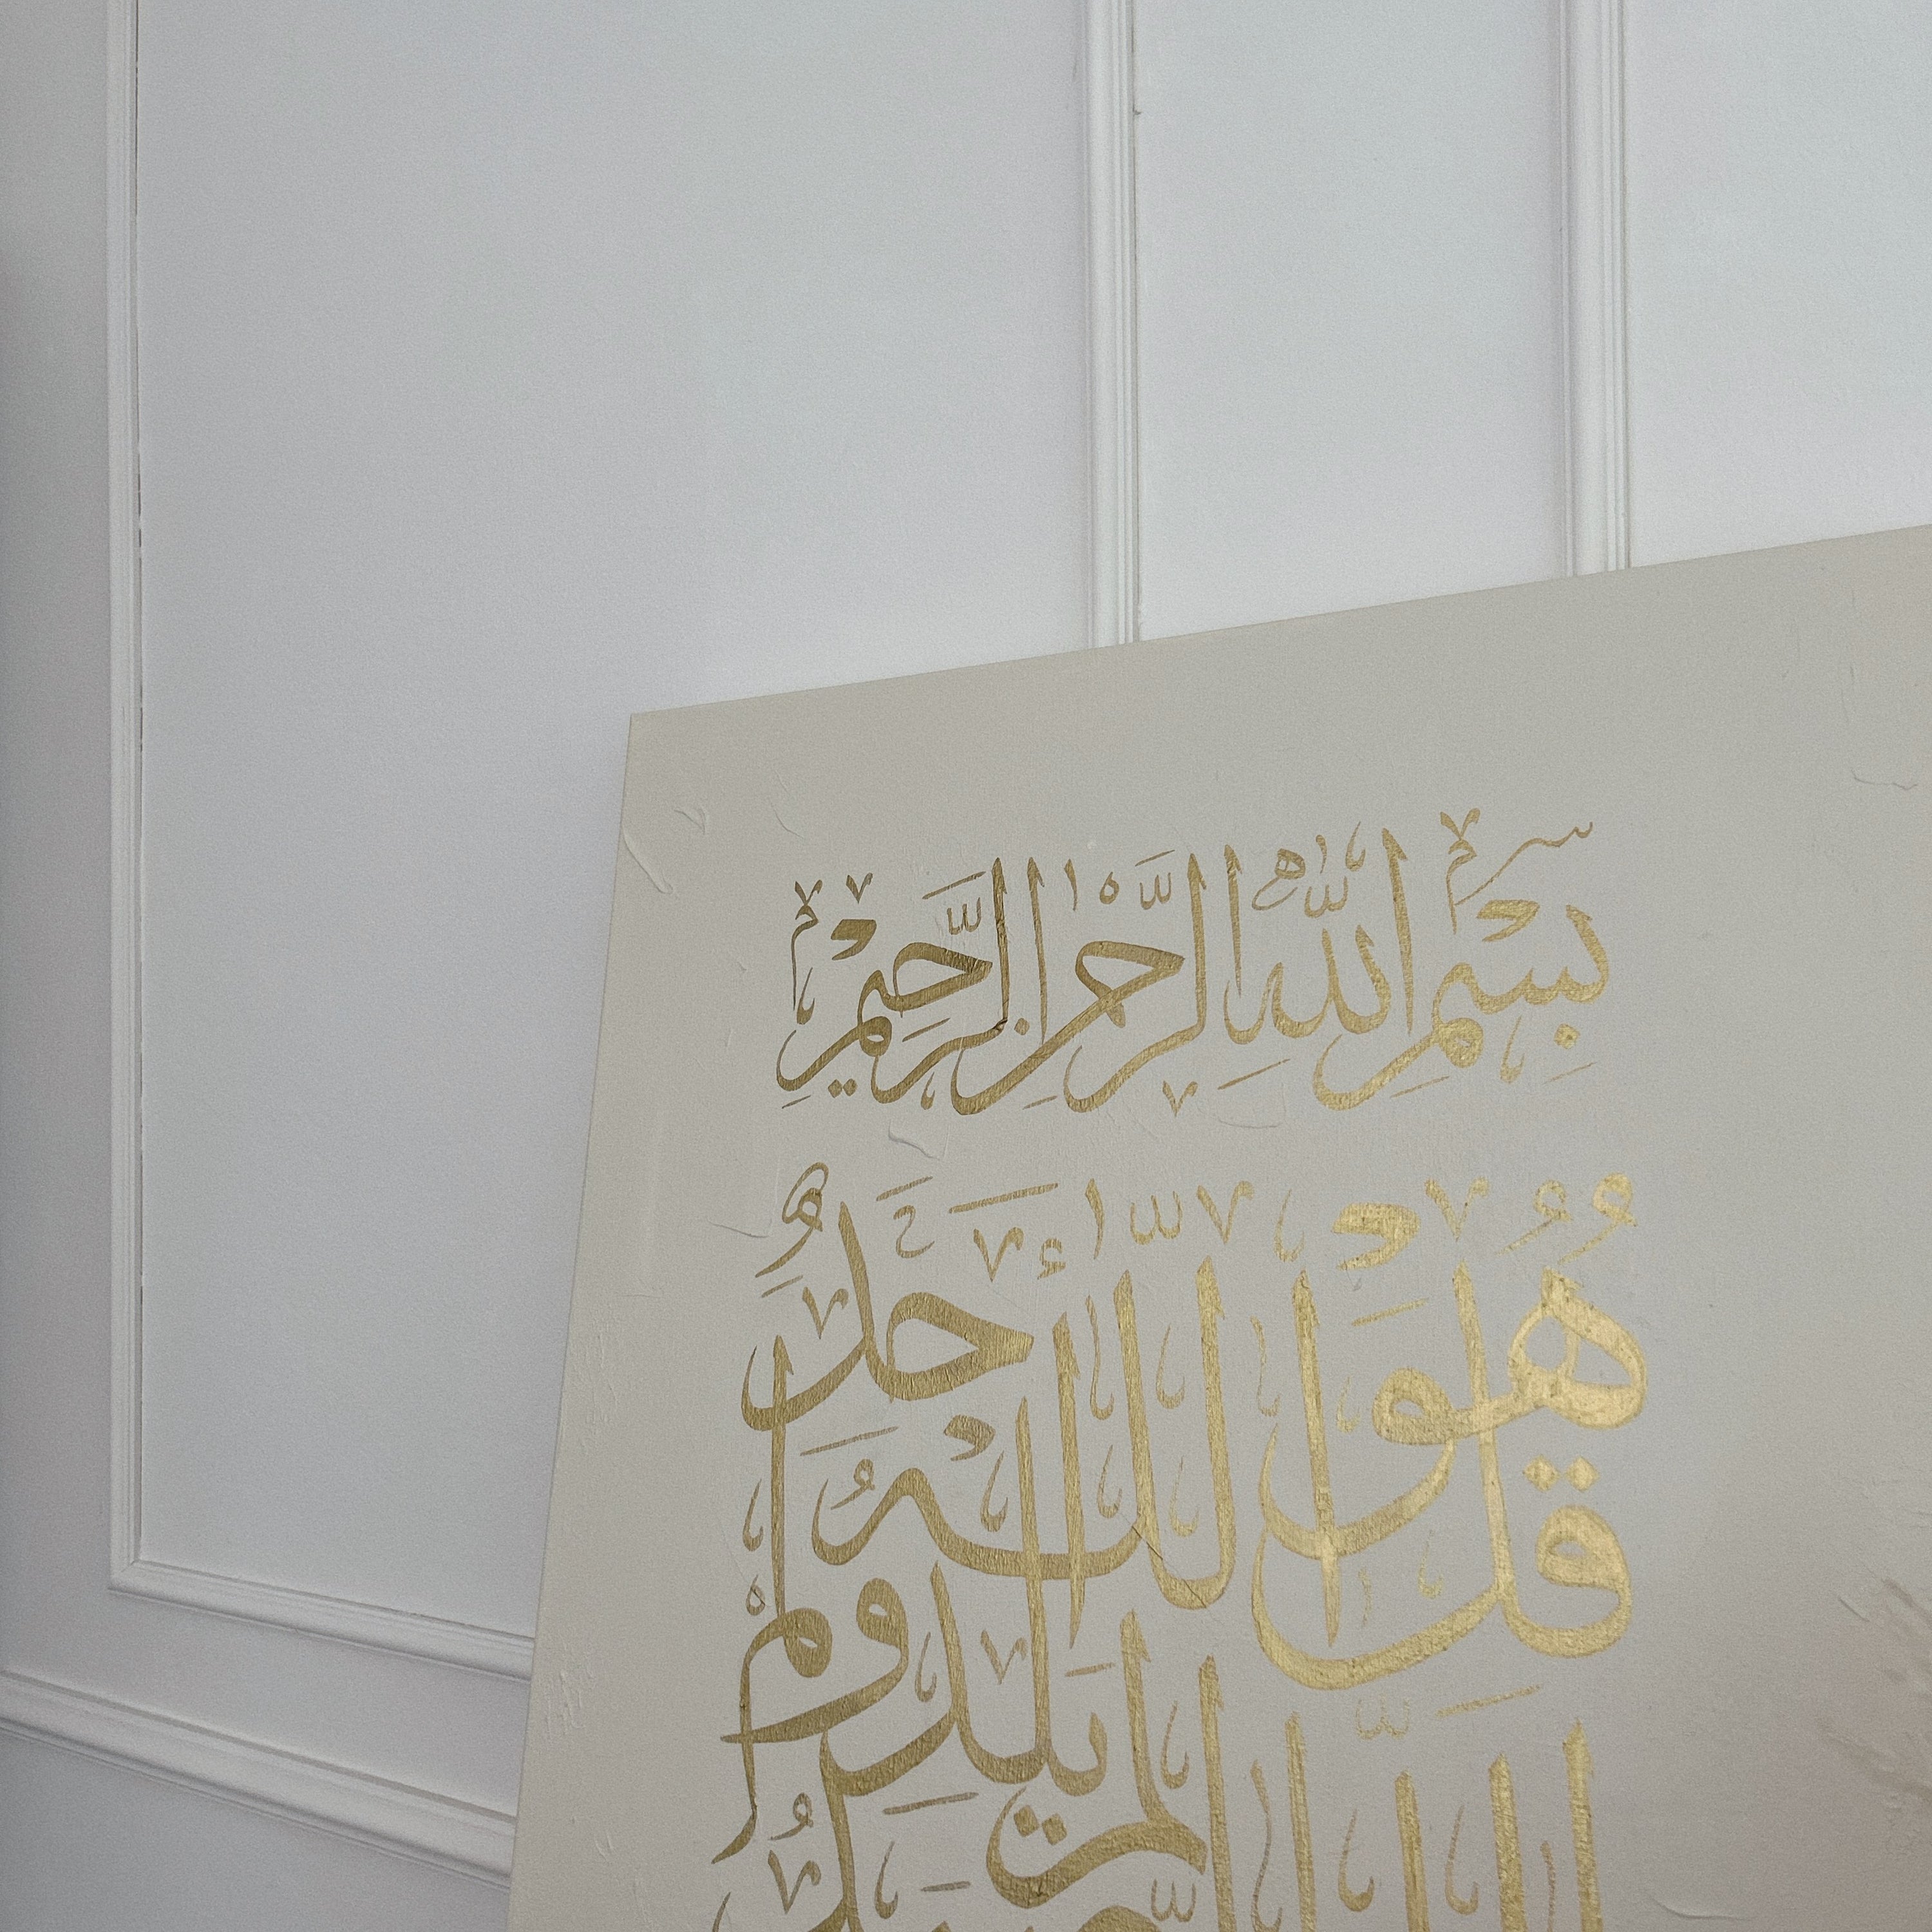 بِسْمِ اللَّهِ الرَّحْمَنِ الرَّحِيمِ
قُلْ هُوَ اللَّهُ أَحَدٌ
اللَّهُ
لَمْ يَلِدْ وَلَمْ